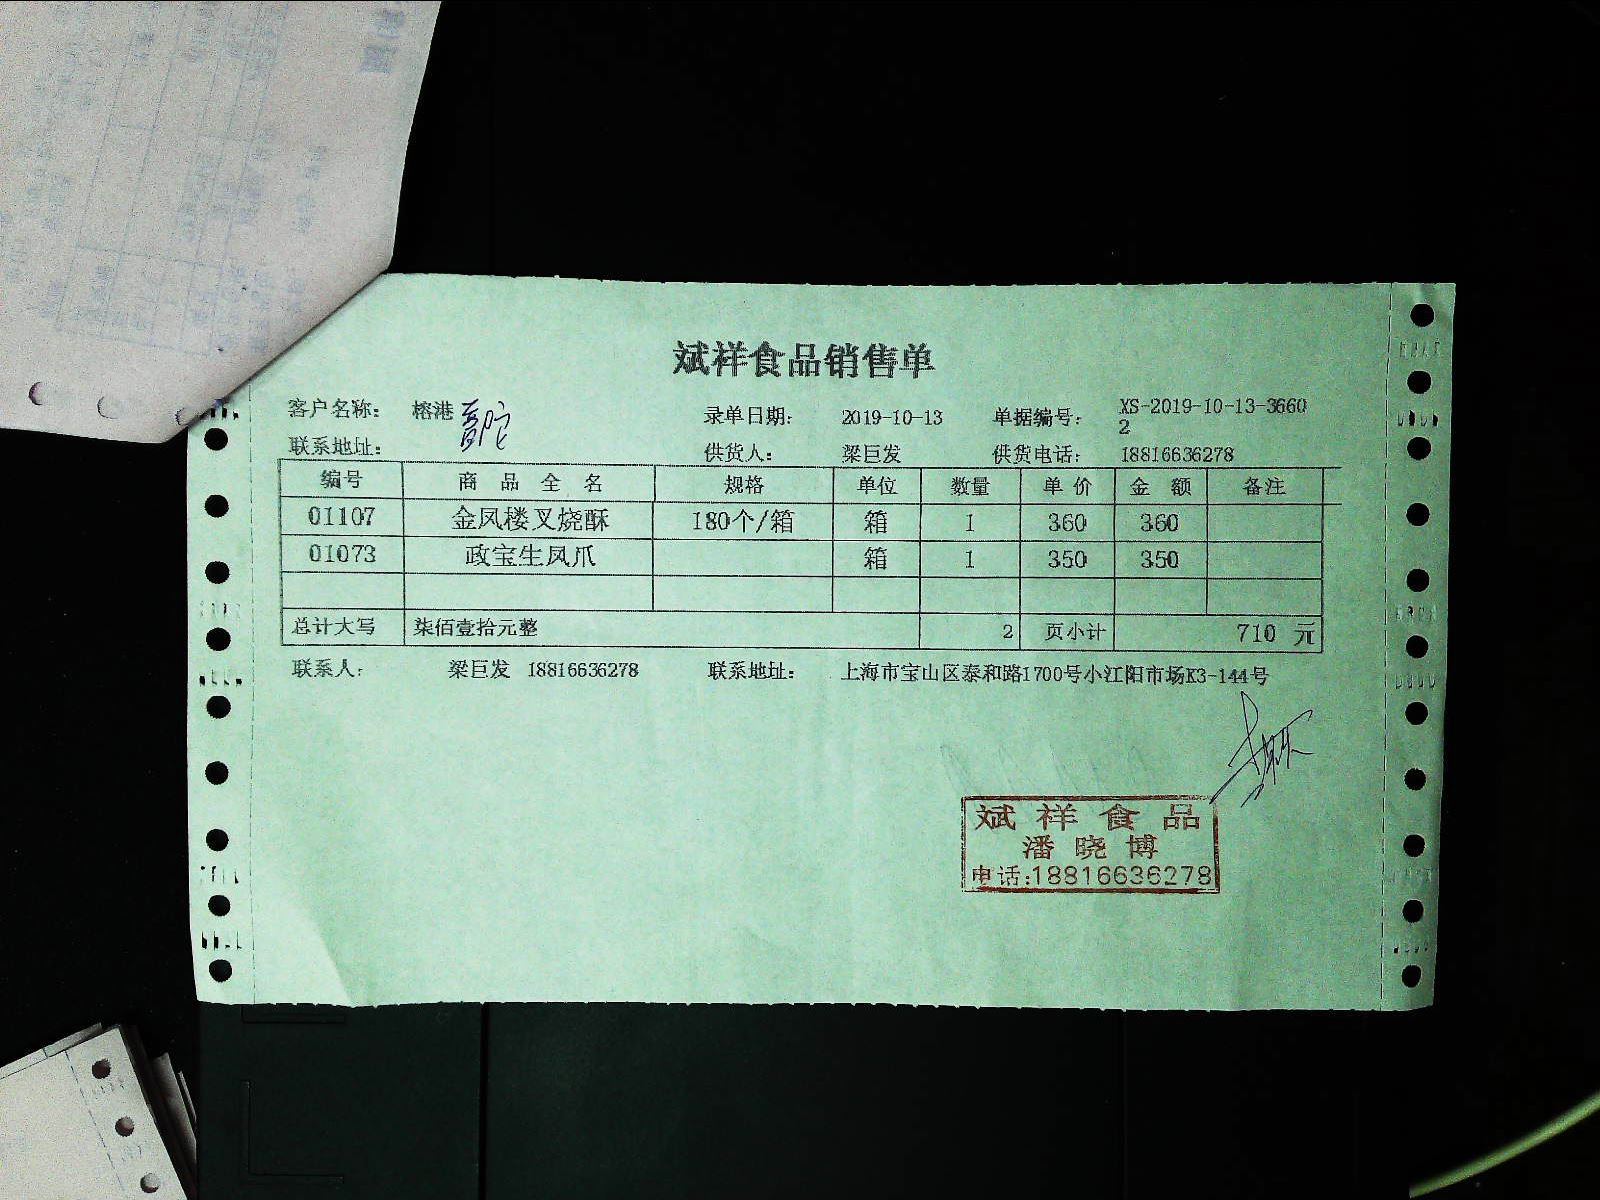 斌祥食品销售单
客户名称： 榕港 普陀 录单日期： 2019-10-13 单据编号： XS-2019-10-13-3660
2
联系地址： 供货人： 梁巨发 供货电话： 18816636278
编号 商品全名 规格 单位 数量 单价 金额 备注
01107 金凤楼叉烧酥 180个/箱 箱 1 360 360
01073 政宝生凤爪 箱 1 350 350
总计大写 柒佰壹拾元整 2 页小计 710 元
联系人： 梁巨发 18816636278 联系地址： 上海市宝山区泰和路1700号小江阳市场K3-144号
斌祥食品
潘晓博
电话:18816636278